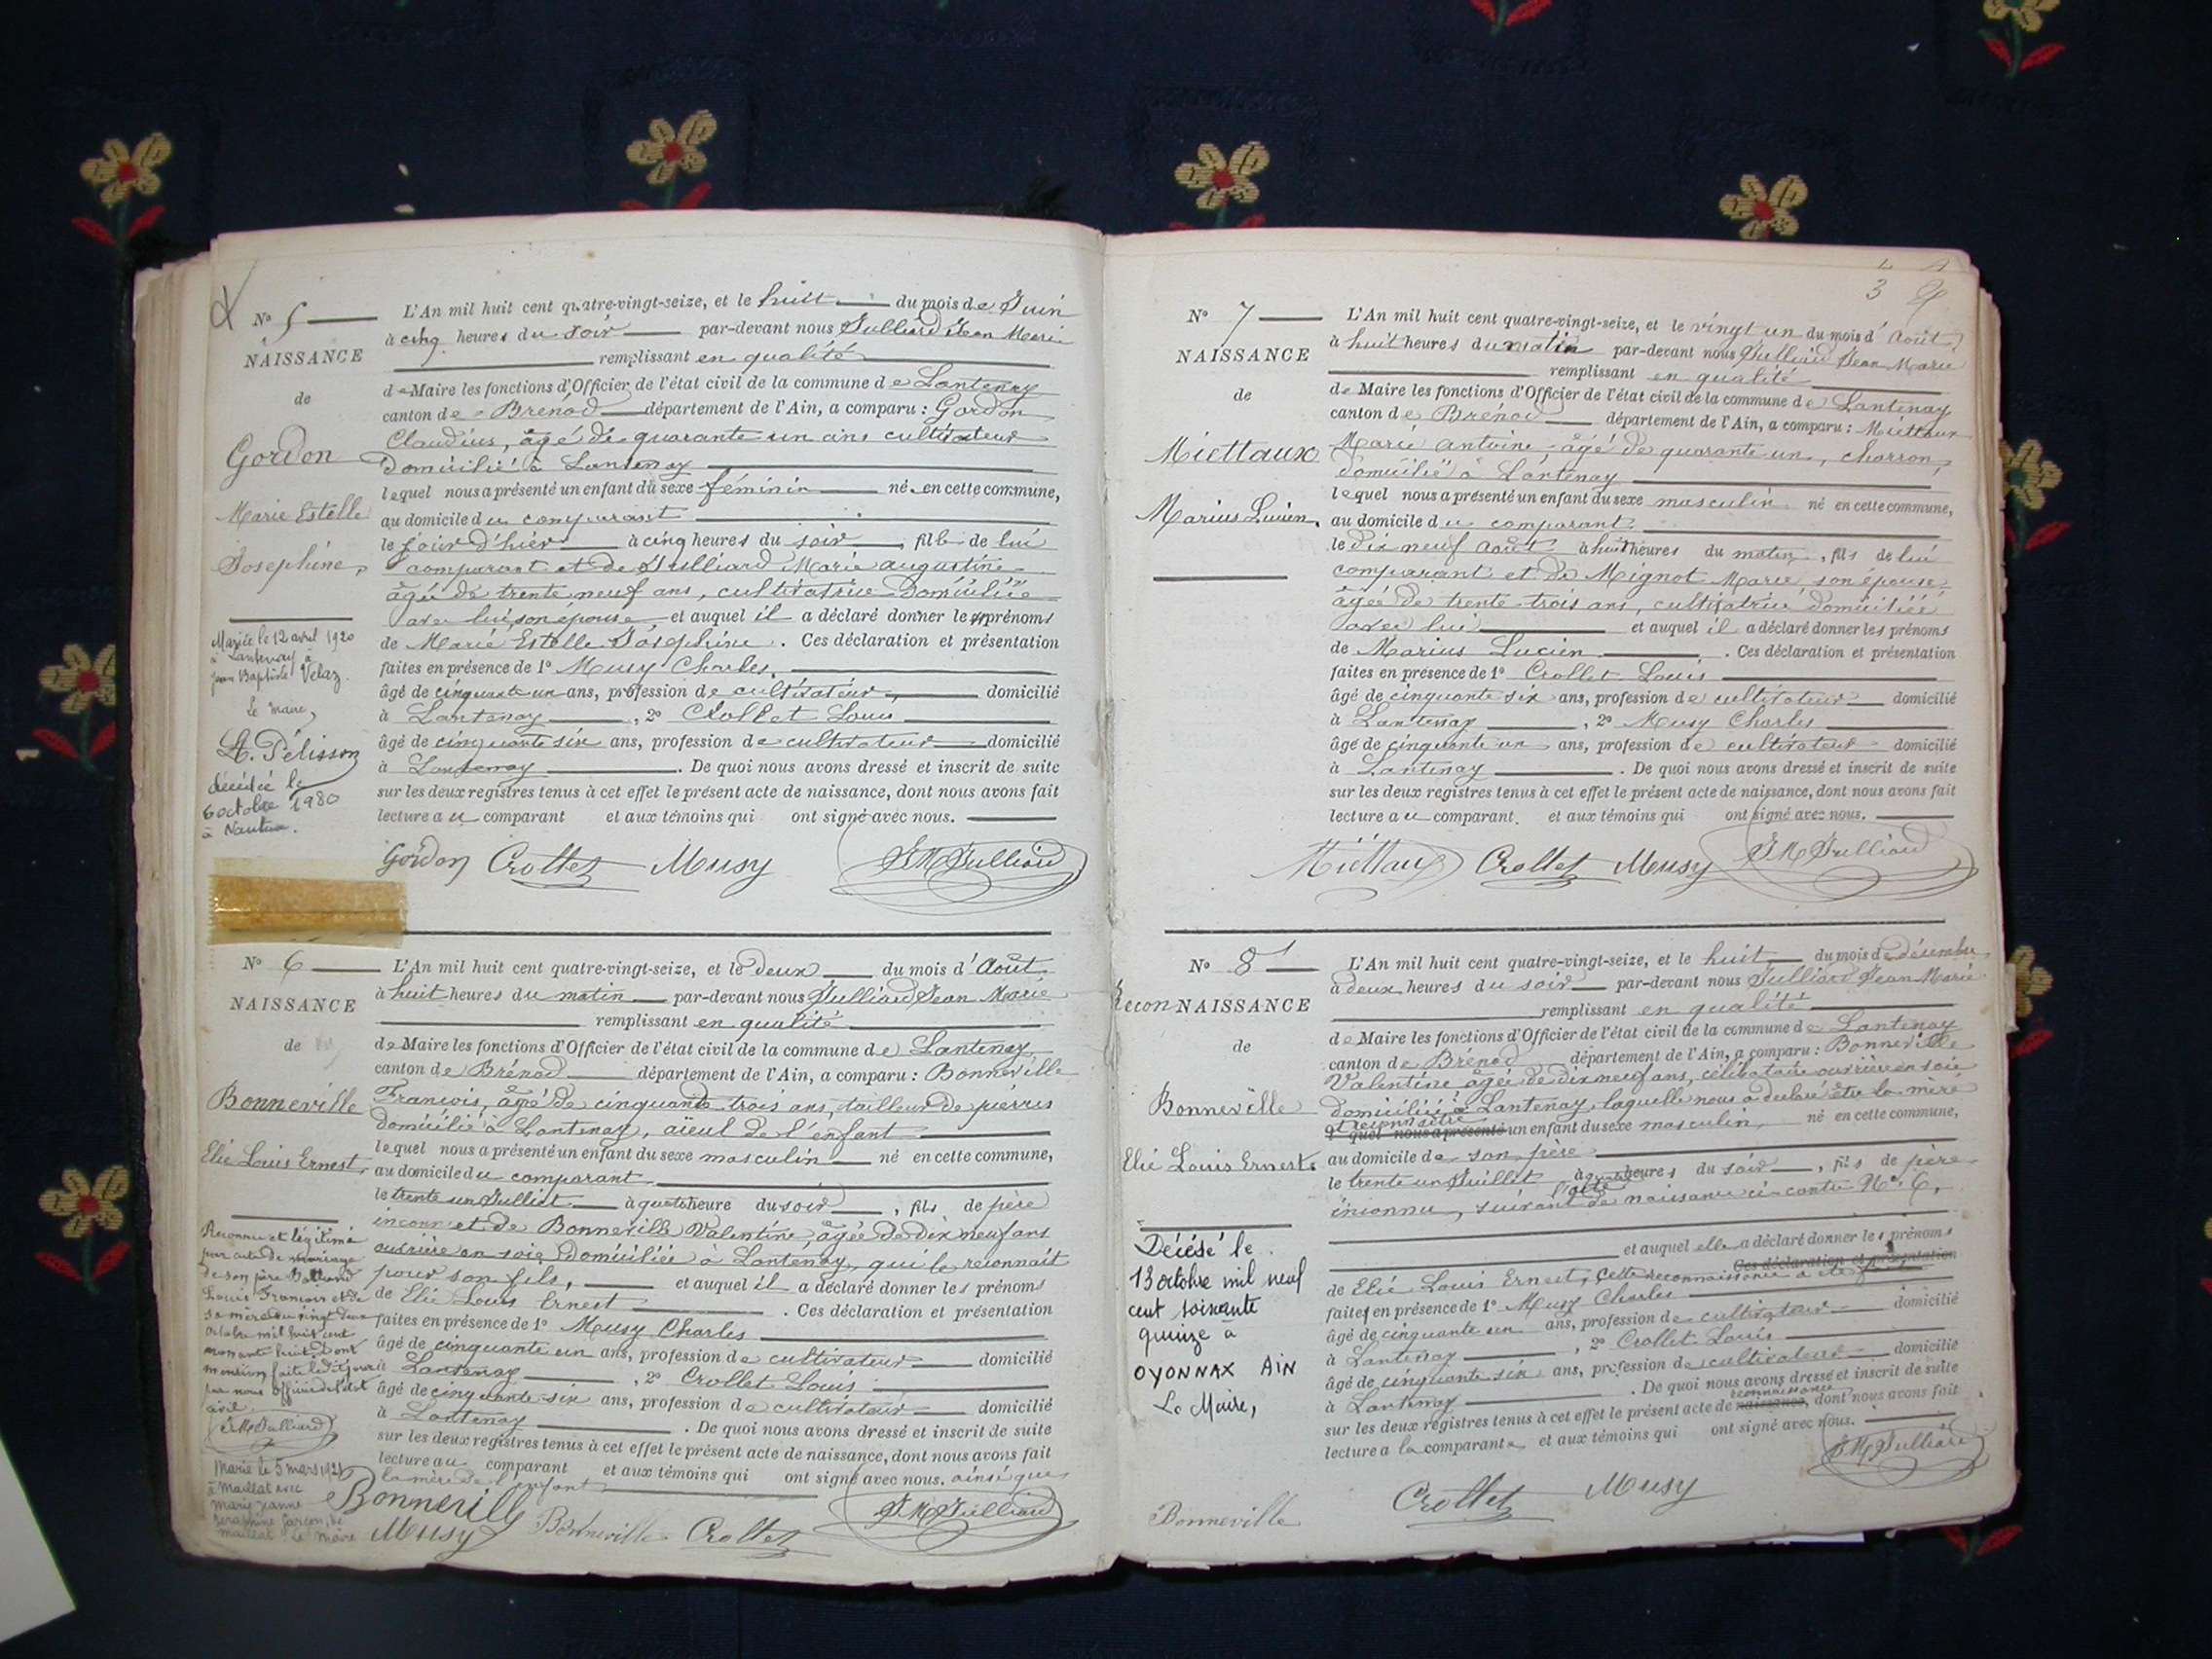 Nº 5
NAISSANCE
de
Gordon
Marie Estelle
Joséphine
L'An mil huit cent quatre-vingt-seize, et le huit du mois de Juin
à cinq heures du soir par-devant nous Julliard Jean Marie
remplissant en qualité
de Maire les fonctions d'Officier de l'état civil de la commune de Lantenay
canton de Brénod département de l'Ain, a comparu : Gordon
Claudius, âgé de quarante un ans cultivateur
domicilié à Lantenay
lequel nous a présenté un enfant du sexe féminin né en cette commune,
au domicile du comparant
le jour d'hier à cinq heures du soir, fille de lui
comparant et de Julliard Marie augustine
âgée de trente neuf ans, cultivatrice domiciliée
avec lui, son épouse, et auquel il a déclaré donner les prénoms
de Marie Estelle Joséphine. Ces déclaration et présentation
faites en présence de 1º Musy Charles,
âgé de cinquante un ans, profession de cultivateur, domicilié
à Lantenay, 2º Crollet Louis
âgé de cinquante six ans, profession de cultivateur domicilié
à Lantenay. De quoi nous avons dressé et inscrit de suite
sur les deux registres tenus à cet effet le présent acte de naissance, dont nous avons fait
lecture au comparant et aux témoins qui ont signé avec nous.
Gordon Crollet Musy JM Julliard
Mariée le 12 avril 1920
à Lantenay à
Jean Baptiste Velaz.
Le maire,
A. Pélisson
décédée le
6 octobre 1980
à Nantua.
Nº 6
NAISSANCE
de
Bonneville
Elie Louis Ernest
L'An mil huit cent quatre-vingt-seize, et le deux du mois d'Août
à huit heures du matin par-devant nous Julliard Jean Marie
remplissant en qualité
de Maire les fonctions d'Officier de l'état civil de la commune de Lantenay
canton de Brénod département de l'Ain, a comparu : Bonneville
François, âgé de cinquante trois ans, tailleur de pierres
domicilié à Lantenay, aïeul de l'enfant
lequel nous a présenté un enfant du sexe masculin né en cette commune,
au domicile du comparant
le trente un Juillet à quatre heure du soir, fils de père
inconnu et de Bonneville Valentine, âgée de dix neuf ans
ouvrière en soie domiciliée à Lantenay, qui le reconnait
pour son fils, et auquel il a déclaré donner les prénoms
de Elie Louis Ernest. Ces déclaration et présentation
faites en présence de 1º Musy Charles
âgé de cinquante un ans, profession de cultivateur domicilié
à Lantenay, 2º Crollet Louis
âgé de cinquante six ans, profession de cultivateur domicilié
à Lantenay. De quoi nous avons dressé et inscrit de suite
sur les deux registres tenus à cet effet le présent acte de naissance, dont nous avons fait
lecture au comparant et aux témoins qui ont signé avec nous. ainsi que
la mère de l'enfant
Bonneville
Musy Bonneville Crollet JM Julliard
Reconnu et légitimé
par acte de mariage
de son père
Louis François et de
sa mère du vingt deux
octobre mil huit cent
nonante huit, dont
mention faite le dit jour
par nous officier de l'état
civil.
JM Julliard
Marié le 5 mars 1921
à Maillat avec
Marie Jeanne
Maillat. Le Maire
3
Nº 7
NAISSANCE
de
Miettaux
Marius Lucien.
L'An mil huit cent quatre-vingt-seize, et le vingt un du mois d'Août
à huit heures du matin par-devant nous Julliard Jean Marie
remplissant en qualité
de Maire les fonctions d'Officier de l'état civil de la commune de Lantenay
canton de Brénod département de l'Ain, a comparu : Miettaux
Marie Antoine âgé de quarante un, charron,
domicilié à Lantenay
lequel nous a présenté un enfant du sexe masculin né en cette commune,
au domicile du comparant
le dix neuf août à huit heures du matin, fils de lui
comparant et de Mignot Marie son épouse
âgée de trente trois ans, cultivatrice domiciliée
avec lui et auquel il a déclaré donner les prénoms
de Marius Lucien. Ces déclaration et présentation
faites en présence de 1º Crollet Louis
âgé de cinquante six ans, profession de cultivateur domicilié
à Lantenay, 2º Musy Charles
âgé de cinquante un ans, profession de cultivateur domicilié
à Lantenay. De quoi nous avons dressé et inscrit de suite
sur les deux registres tenus à cet effet le présent acte de naissance, dont nous avons fait
lecture au comparant. et aux témoins qui ont signé avec nous.
Miettaux Crollet Musy JM Julliard
Nº 8
Recon NAISSANCE
de
Bonneville
Elie Louis Ernest
L'An mil huit cent quatre-vingt-seize, et le huit du mois de décembre
à deux heures du soir par-devant nous Julliard Jean Marie
remplissant en qualité
de Maire les fonctions d'Officier de l'état civil de la commune de Lantenay
canton de Brénod département de l'Ain, a comparu : Bonneville
Valentine âgée de dix neuf ans, célibataire ouvrière en soie
domiciliée à Lantenay, laquelle nous a déclaré être la mère
et reconnaître
lequel nous a présenté un enfant du sexe masculin, né en cette commune,
au domicile de son père
le trente un Juillet à quatre heures du soir, fils de père
inconnu, suivant l'acte de naissance ci-contre Nº 6,
et auquel elle a déclaré donner les prénoms
de Elie Louis Ernest, cette reconnaissance a été Ces déclaration et présentation
faites en présence de 1º Musy Charles
âgé de cinquante un ans, profession de cultivateur domicilié
à Lantenay, 2º Crollet Louis
âgé de cinquante six ans, profession de cultivateur domicilié
à Lantenay. De quoi nous avons dressé et inscrit de suite
sur les deux registres tenus à cet effet le présent acte de naissance, reconnaissance dont nous avons fait
lecture a la comparante et aux témoins qui ont signé avec nous.
JM Julliard
Bonneville Crollet Musy
Décédé le
13 octobre mil neuf
cent soixante
quinze à
OYONNAX AIN
Le Maire,